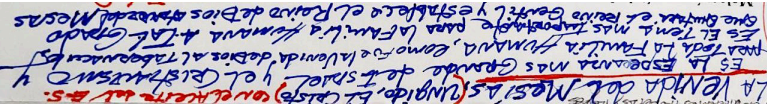 LA VENIDA del MESIAS, (Ungido. El Cristo) con el Aceite del E.S.
ES LA ESPERANZA MAS GRANDE de Israel y el CRISTIANISMO Y
PARA TODA LA FAMILIA HUMANA, Como fue la Venida de Dios AL TABERNACULO,
ES EL TEMA MAS IMPORTANTE PARA LA FAMILIA HUMANA A TAL GRADO
que quitara el REINO GENTIL y establece el Reino de Dios